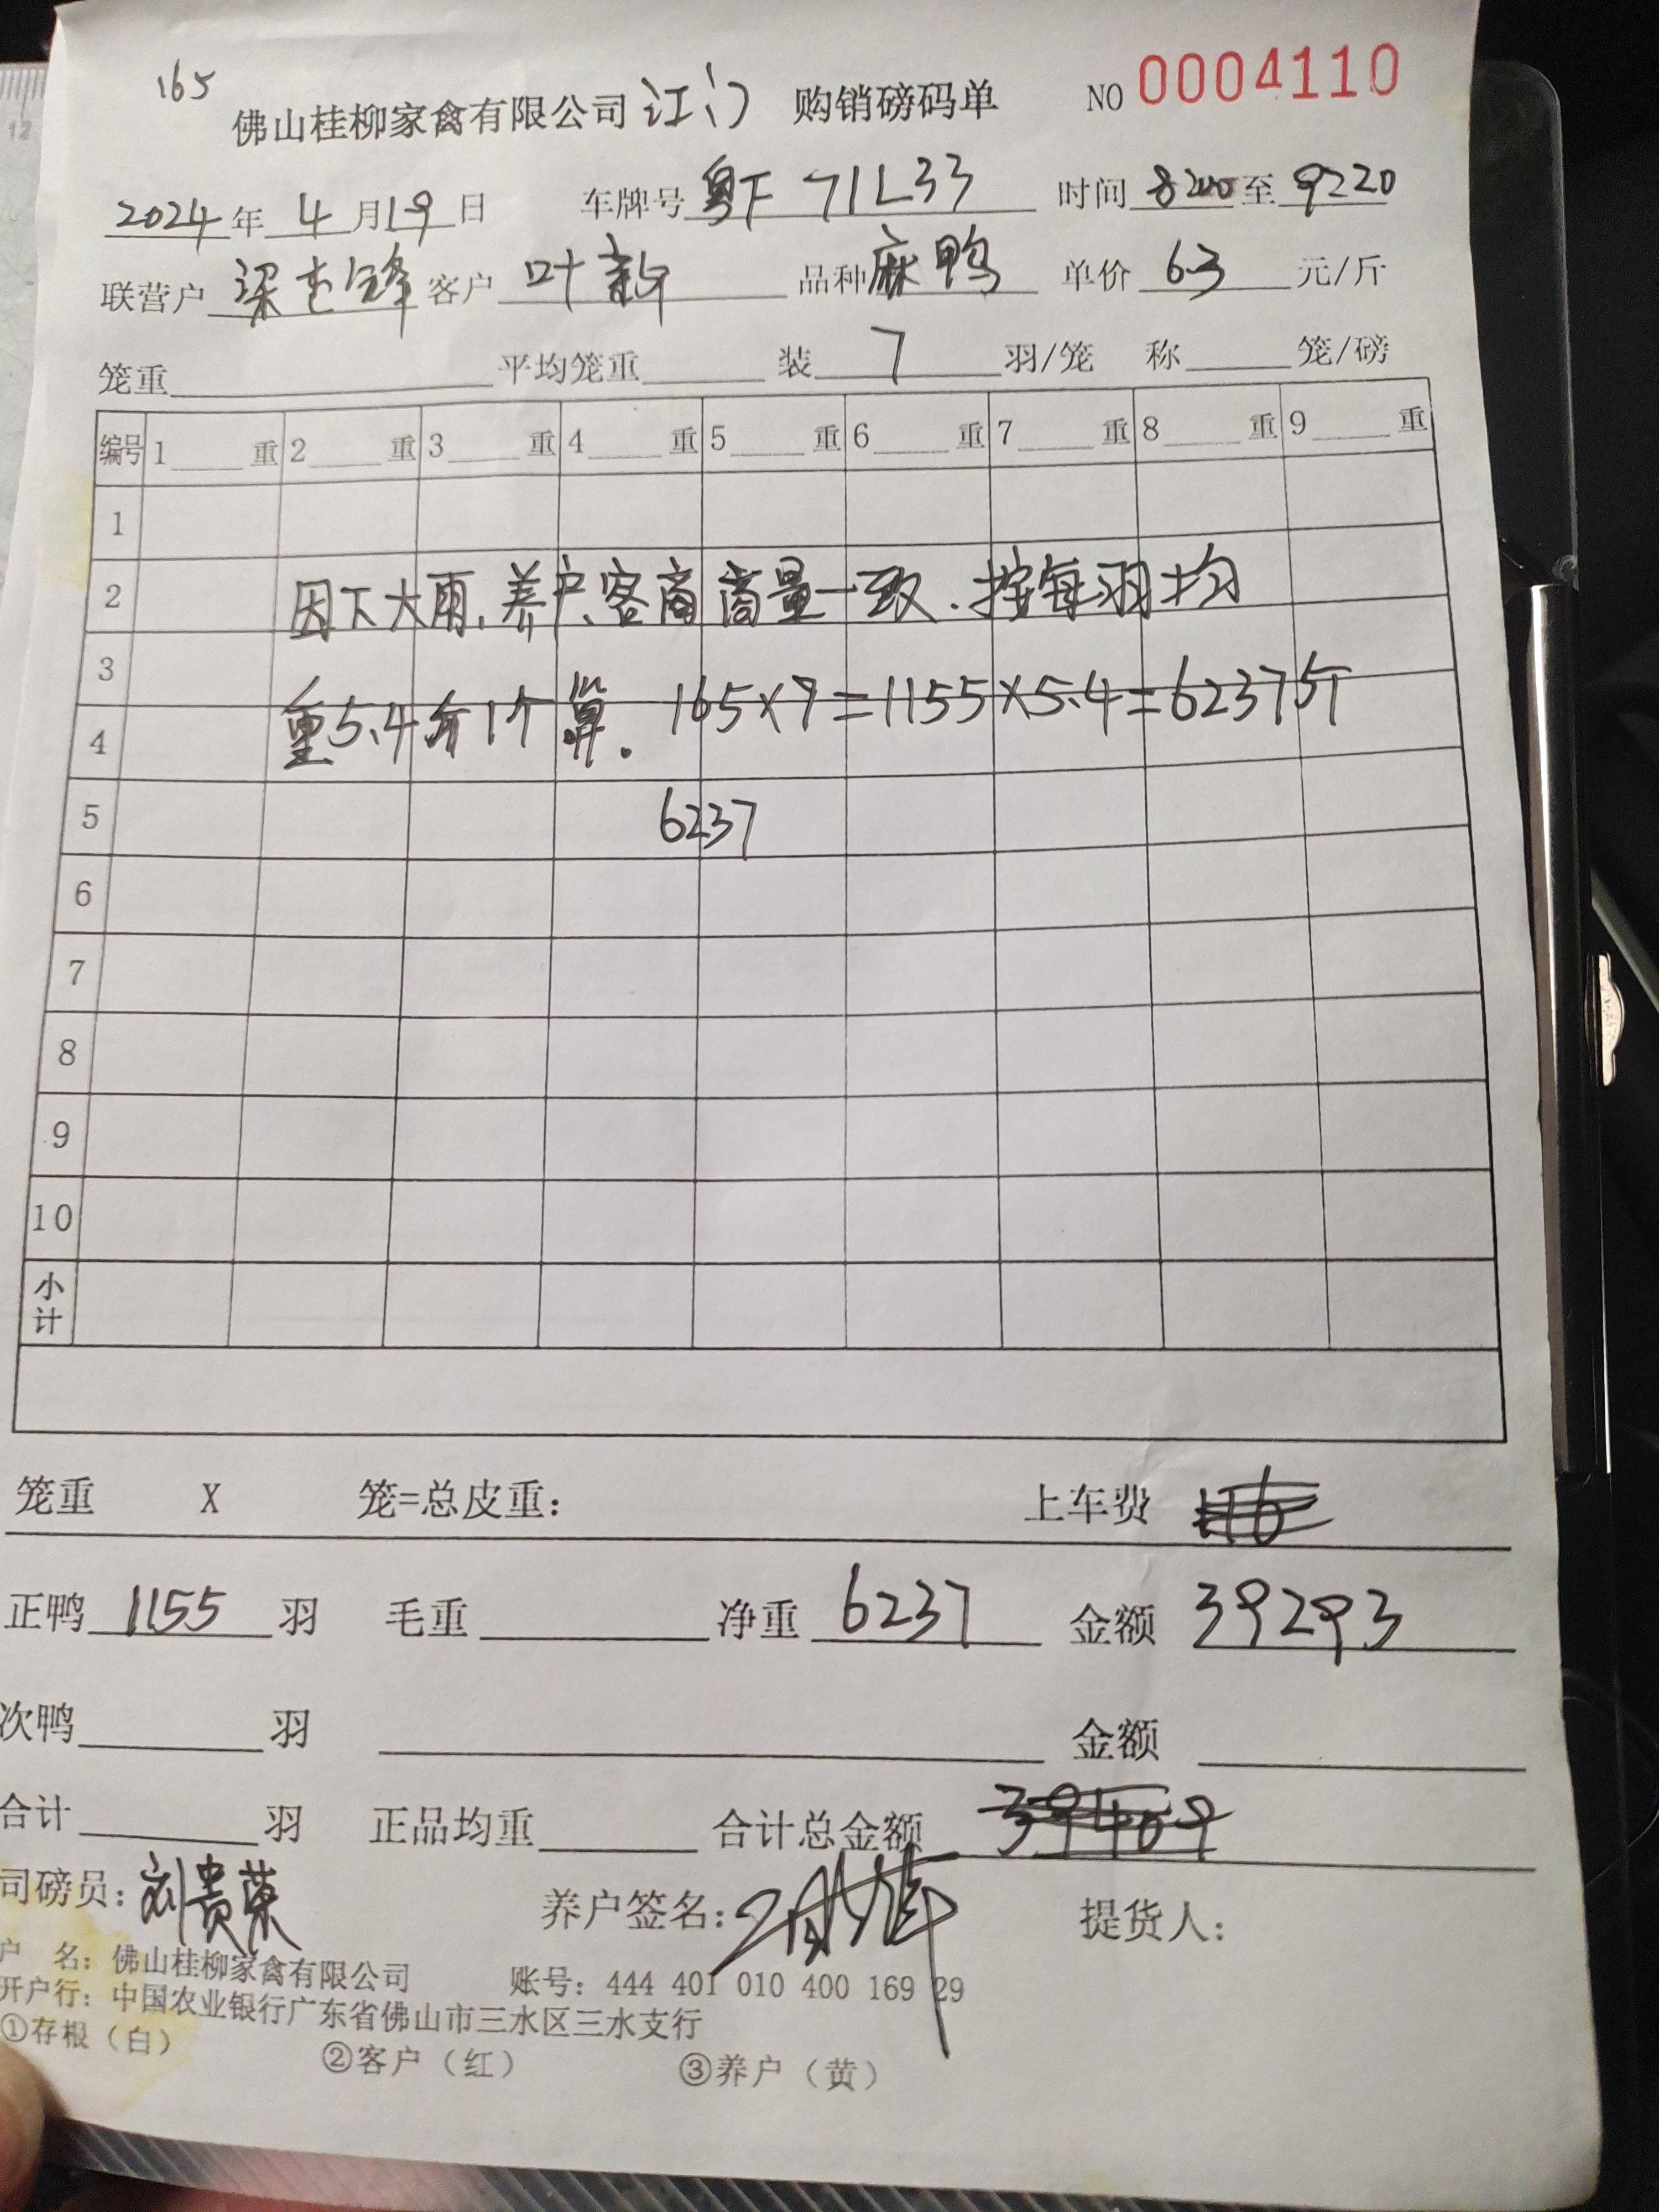 165
佛山桂柳家禽有限公司 江门 购销磅码单 NO 0004110
2024年 4月19日 车牌号 粤F 71L33 时间 8:20 至 9:20
联营户 梁 锋 客户 叶新 品种 麻鸭 单价 6.3 元/斤
笼重 平均笼重 装 7 羽/笼 称 笼/磅
编号 1 重 2 重 3 重 4 重 5 重 6 重 7 重 8 重 9 重
1
2 因下大雨、养户、客商商量一致、按每羽均
3
4 重5.4斤1个算。165×7=1155×5.4=6237斤
5 6237
6
7
8
9
10
小计
笼重 X 笼=总皮重: 上车费
正鸭 1155 羽 毛重 净重 6237 金额 39293
次鸭 羽 金额
合计 羽 正品均重 合计总金额 39409
司磅员: 刘贵荣 养户签名: 提货人:
户 名: 佛山桂柳家禽有限公司 账号: 444 401 010 400 169 29
开户行: 中国农业银行广东省佛山市三水区三水支行
①存根(白) ②客户(红) ③养户(黄)